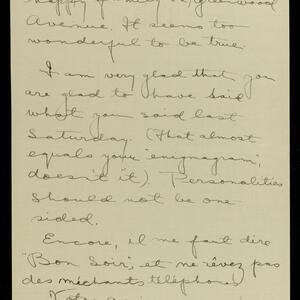 happy family on Greenwood
Avenue. It seems too
wonderful to be true.
I am very glad that you
are glad to have said
what you said last
Saturday. (That almost
equals your "enignagram",
doesn't it). Personalities
should not be one
sided.
Encore, il me faut dire
"Bon Soir", et ne rêvez pas
des méchants téléphones